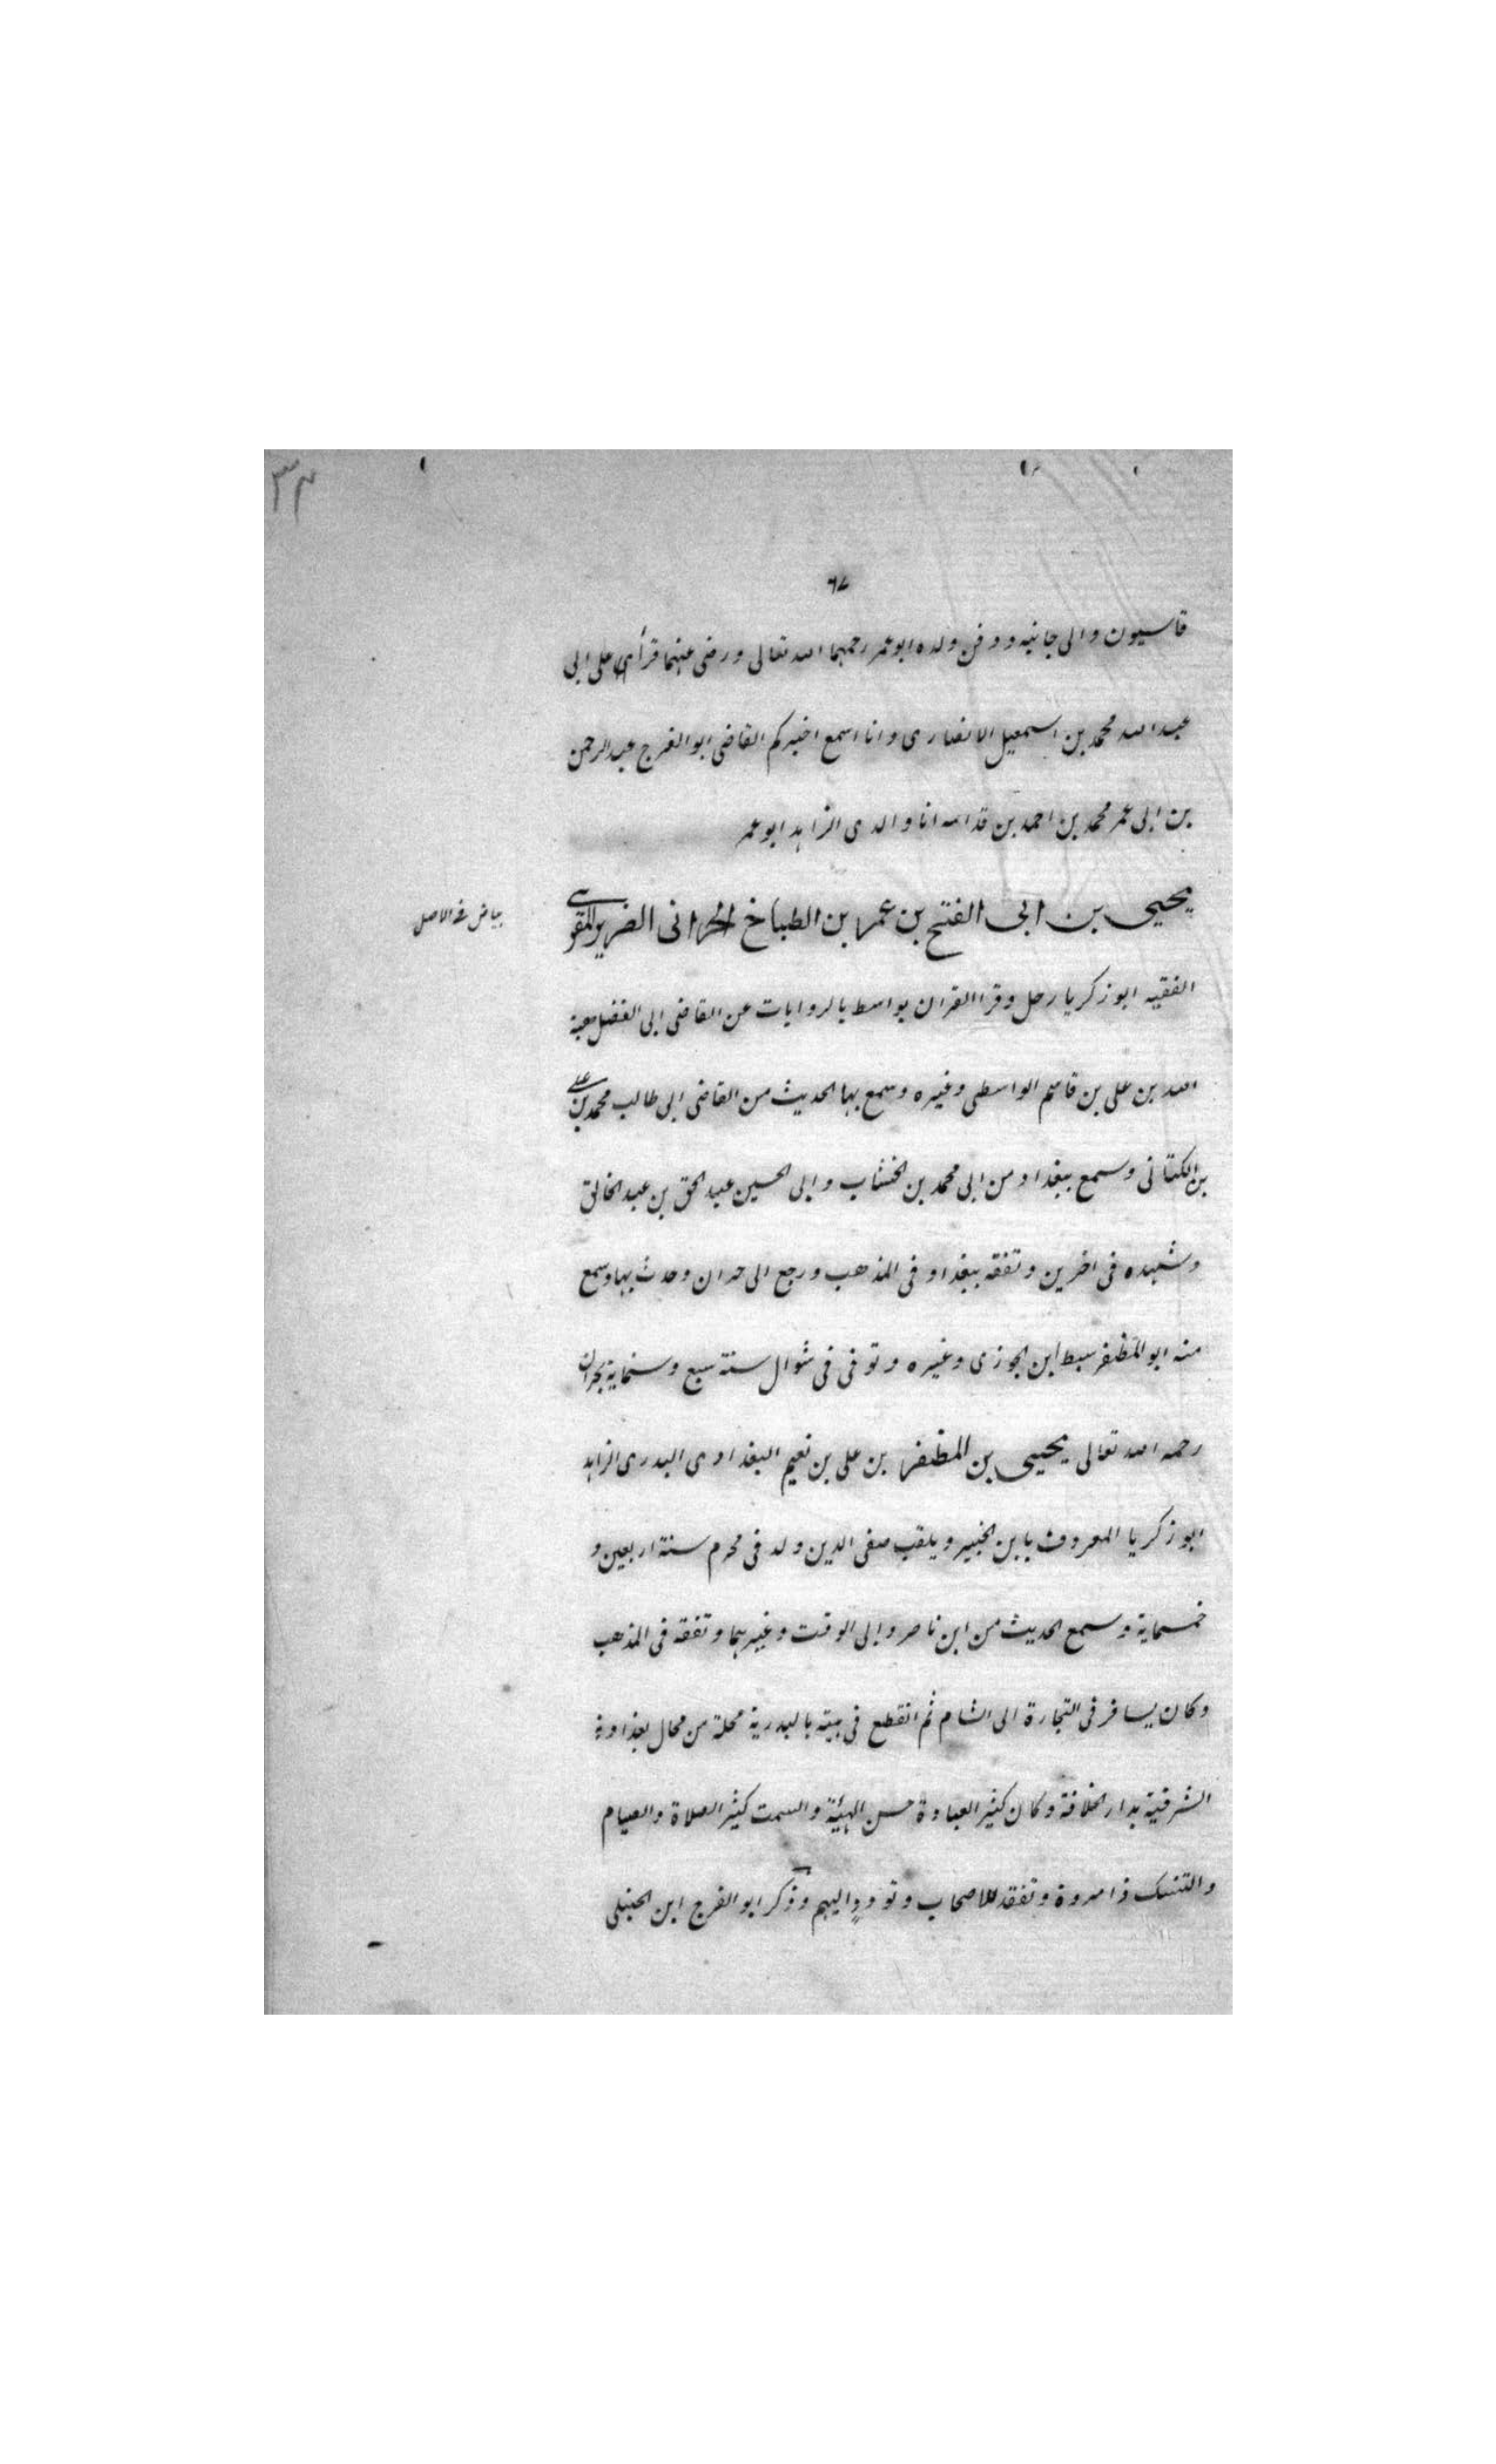 ٣٤
٦٧
قاسيون والى جانبه ودفن ولده ابو عمر رحمهما الله تعالى ورضى عنهما قرأ على ابى
عبد الله محمد بن اسمعيل الانصارى وانا اسمع اخبركم القاضى ابو الفرج عبد الرحمن
بن ابى عمر محمد بن احمد بن قدامه انا والدى الزاهد ابو عمر
يحيى بن ابى الفتح بن عمر بن الطباخ الحرانى الضرير المقرى
بياض فى الاصل
الفقيه ابو زكريا رحل وقرا القران بواسط بالروايات عن القاضى ابى الفضل هبة
الله بن على بن قاسم الواسطى وغيره وسمع بها الحديث من القاضى ابى طالب محمد بن على
بن الكتانى وسمع ببغداد من ابى محمد بن الخشاب وابى الحسين عبد الحق بن عبد الخالق
وشهده فى اخرين وتفقه ببغداد فى المذهب ورجع الى حران وحدث بها وسمع
منه ابو المظفر سبط ابن الجوزى وغيره وتوفى فى شوال سنة سبع وستماية بحران
رحمه الله تعالى يحيى بن المظفر بن على بن نعيم البغدادى البدرى الزاهد
ابو زكريا المعروف بابن الخبير ويلقب صفى الدين ولد فى محرم سنة اربعين و
خمسماية وسمع الحديث من ابن ناصر وابى الوقت وغيرهما وتفقه فى المذهب
وكان يسافر فى التجارة الى الشام ثم انقطع فى بيته بالبدرية محلة من محال بغداد
الشرقية بدار الخلافة وكان كثير العبادة حسن الهيئة والسمت كثير الصلاة والصيام
والتنسك ذا مروة وتفقد للاصحاب وتودد اليهم وذكر ابو الفرج ابن الحنبلى